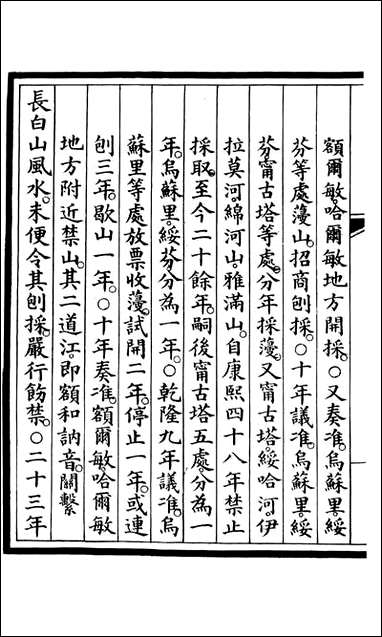 額爾敏。哈爾敏地方開採。○又奏准。烏蘇里。綏
芬等處蓡山。招商刨採。○十年議准。烏蘇里。綏
芬。甯古塔等處。分年採蓡。又甯古塔。綏哈河。伊
拉莫河。綿河山雅滿山。自康熙四十八年禁止
採取。至今二十餘年。嗣後甯古塔五處。分為一
年。烏蘇里。綏芬分為一年。○乾隆九年議准。烏
蘇里等處放票收蓡。試開二年。停止一年。或連
刨三年。歇山一年。○十年奏准。額爾敏。哈爾敏
地方附近禁山。其二道江。即額和訥音。關繫
長白山風水。未便令其刨採。嚴行飭禁。○二十三年